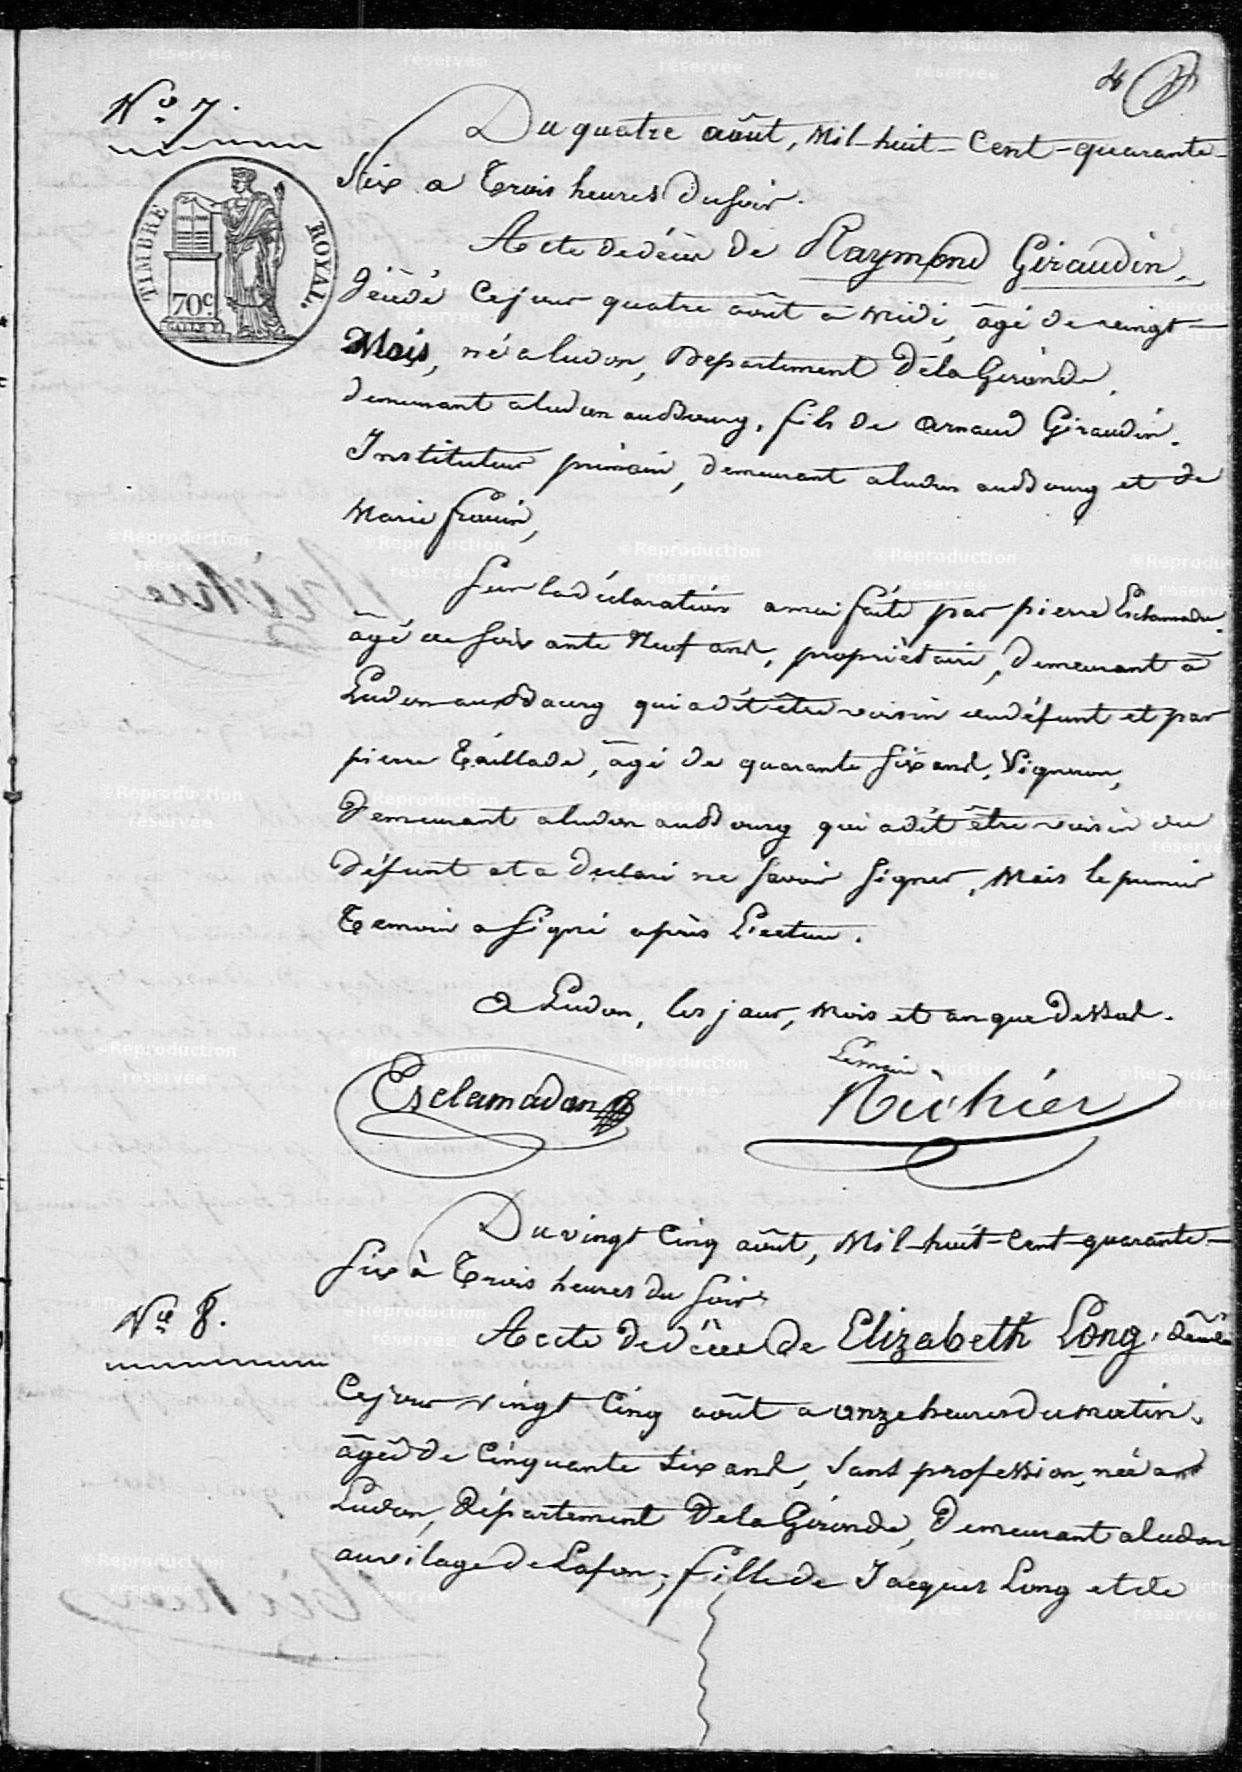 4
N.º 7.
Du quatre août, mil-huit-cent-quarante-
six a trois heures du soir.
TIMBRE ROYAL.
70c
Acte de décès de Raymond Giraudin,
décédé ce jour quatre août à midi, âgé de vingt-
Mois, né a ludon, Departement de la Gironde,
demeurant a ludon au Bourg, fils de arnaud Giraudin.
Instituteur primaire, demeurant a ludon au Bourg et de
Marie
Sur la déclaration a moi faite par pierre Esclamadon
âgé de soixante neuf ans, propriètaire, demeurant à
Ludon au Bourg qui a dit être voisin du défunt et par
pierre Taillade, âgé de quarante six ans, Vigneron,
demeurant a ludon au Bourg qui a dit être voisin du
défunt et a declaré ne savoir signer, mais le premier
temoin a signé après Lecture.
a Ludon, les jour, mois et an que dessus.
Le maire
Esclamadon Richier
Du vingt cinq août, mil-huit-cent-quarante-
six à trois heures du soir
N.º 8.
Acte de décès de Elizabeth Long, décédée
ce jour vingt cinq août a onze heures du matin,
âgée de cinquante six ans, sans profession, née a
Ludon, Département de la Gironde, demeurant a ludon
au vilage de Lafon, fille de Jacques Long et de
©Reproduction réservée